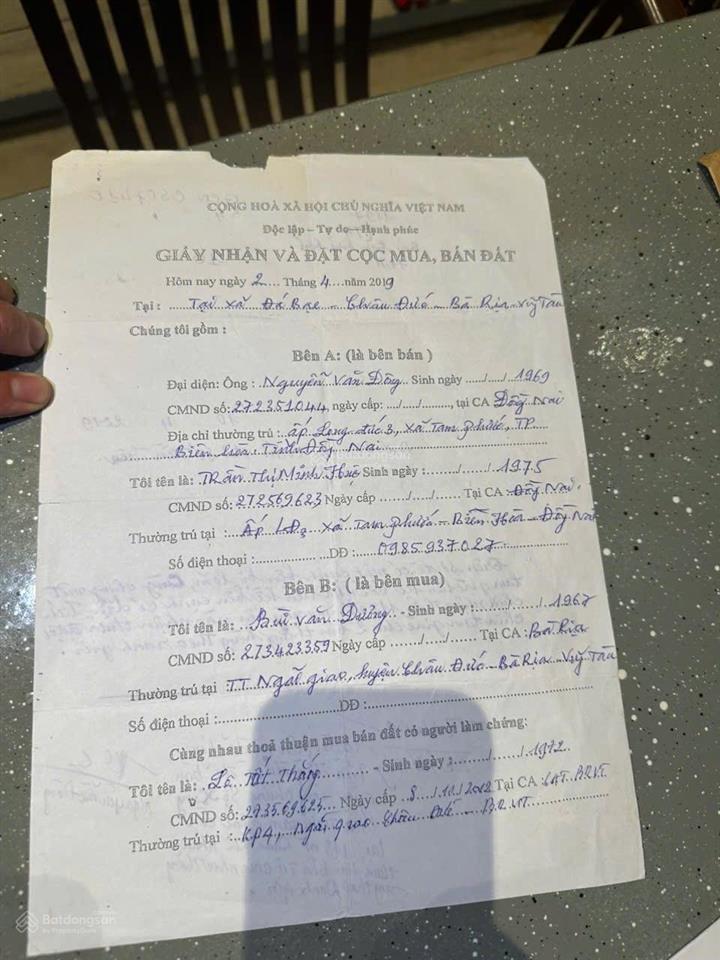 CỘNG HOÀ XÃ HỘI CHỦ NGHĨA VIỆT NAM
Độc lập – Tự do – Hạnh phúc
GIẤY NHẬN VÀ ĐẶT CỌC MUA, BÁN ĐẤT
Hôm nay ngày 2 Tháng 4 năm 2019
Tại : Tại xã Đá Bạc - Châu Đức - Bà Rịa - Vũng Tàu
Chúng tôi gồm :
Bên A: (là bên bán )
Đại diện: Ông : Nguyễn Văn Đông Sinh ngày ...../...../ 1969
CMND số: 272351044, ngày cấp: ..../...../........, tại CA Đồng Nai
Địa chỉ thường trú : ấp Long Đức 3, xã Tam Phước, TP
Biên Hòa - Tỉnh Đồng Nai
Tôi tên là: Trần Thị Minh Sinh ngày :....../....../ 1975
CMND số: 272569623 Ngày cấp ....../....../...... Tại CA : Đồng Nai
Thường trú tại : Ấp xã Tam Phước - Biên Hòa - Đồng Nai
Số điện thoại :............... DĐ : 0985937027
Bên B: ( là bên mua)
Tôi tên là: Bùi Văn Dưỡng - Sinh ngày :....../....../ 1967
CMND số: 273423359 Ngày cấp ....../....../...... Tại CA : Bà Rịa
Thường trú tại TT Ngãi Giao, huyện Châu Đức - Bà Rịa - Vũng Tàu
Số điện thoại :...............DĐ:...............
Cùng nhau thoả thuận mua bán đất có người làm chứng:
Tôi tên là: Lê Tất Thắng - Sinh ngày :....../....../ 1972
CMND số: 273569625 Ngày cấp 8/10/2012 Tại CA : CAT. BRVT.
Thường trú tại : KP4, Ngãi Giao Châu Đức - BRVT
Batdongsan
by PropertyGuru